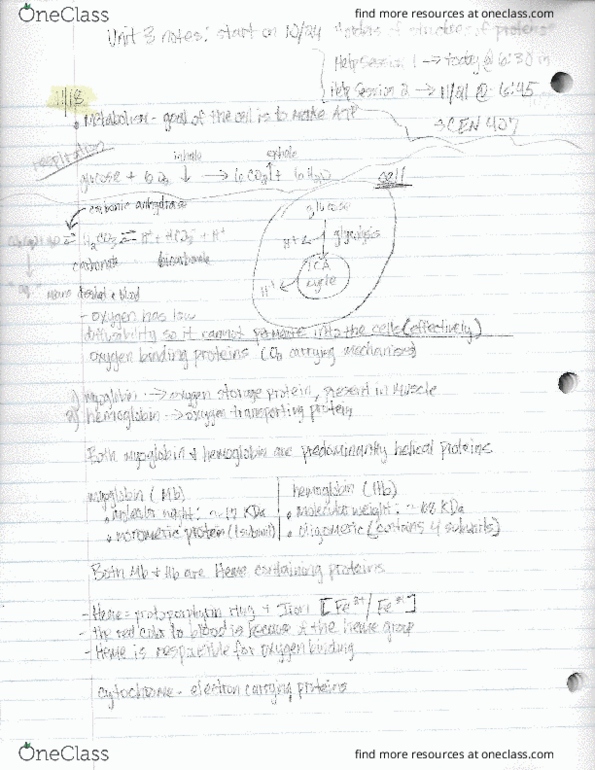 find more resources at oneclass.com
OneClass
Unit 3 notes: start on 10/24 "orders of structures of proteins"
Help Session 1 → today @ 6:30 in
Help Session 2 → 11/21 @ 6:45
→ CEN 407
11/18
• Metabolism - goal of the cell is to make ATP
respiration
inhale exhale
glucose + 6O2 → 6CO2 + 6H2O
cell
carbonic anhydrase
glucose
H2CO3 ⇌ H+ + HCO3- + H+
H+ glycolysis
carbonate bicarbonate
TCA
cycle
H+
"aq." means dissolved in blood
- oxygen has low
diffusability so it cannot permeate into the cells (effectively)
oxygen binding proteins (O2 carrying mechanises)
1) myoglobin → oxygen storage protein, present in Muscle
2) hemoglobin → oxygen transporting protein
Both myoglobin & hemoglobin are predominantly helical proteins
myoglobin (Mb) hemoglobin (Hb)
• molecular weight: ~17 KDa • Molecular weight: ~68 KDa
• monomeric protein (1 subunit) • oligomeric (contains 4 subunits)
Both Mb & Hb are Heme containing proteins
- Heme = protoporphyrin ring + Iron [Fe2+/Fe3+]
- The red color to blood is because of the heme group
- Heme is responsible for oxygen binding
cytochrome - electron carrying proteins
OneClass
find more resources at oneclass.com